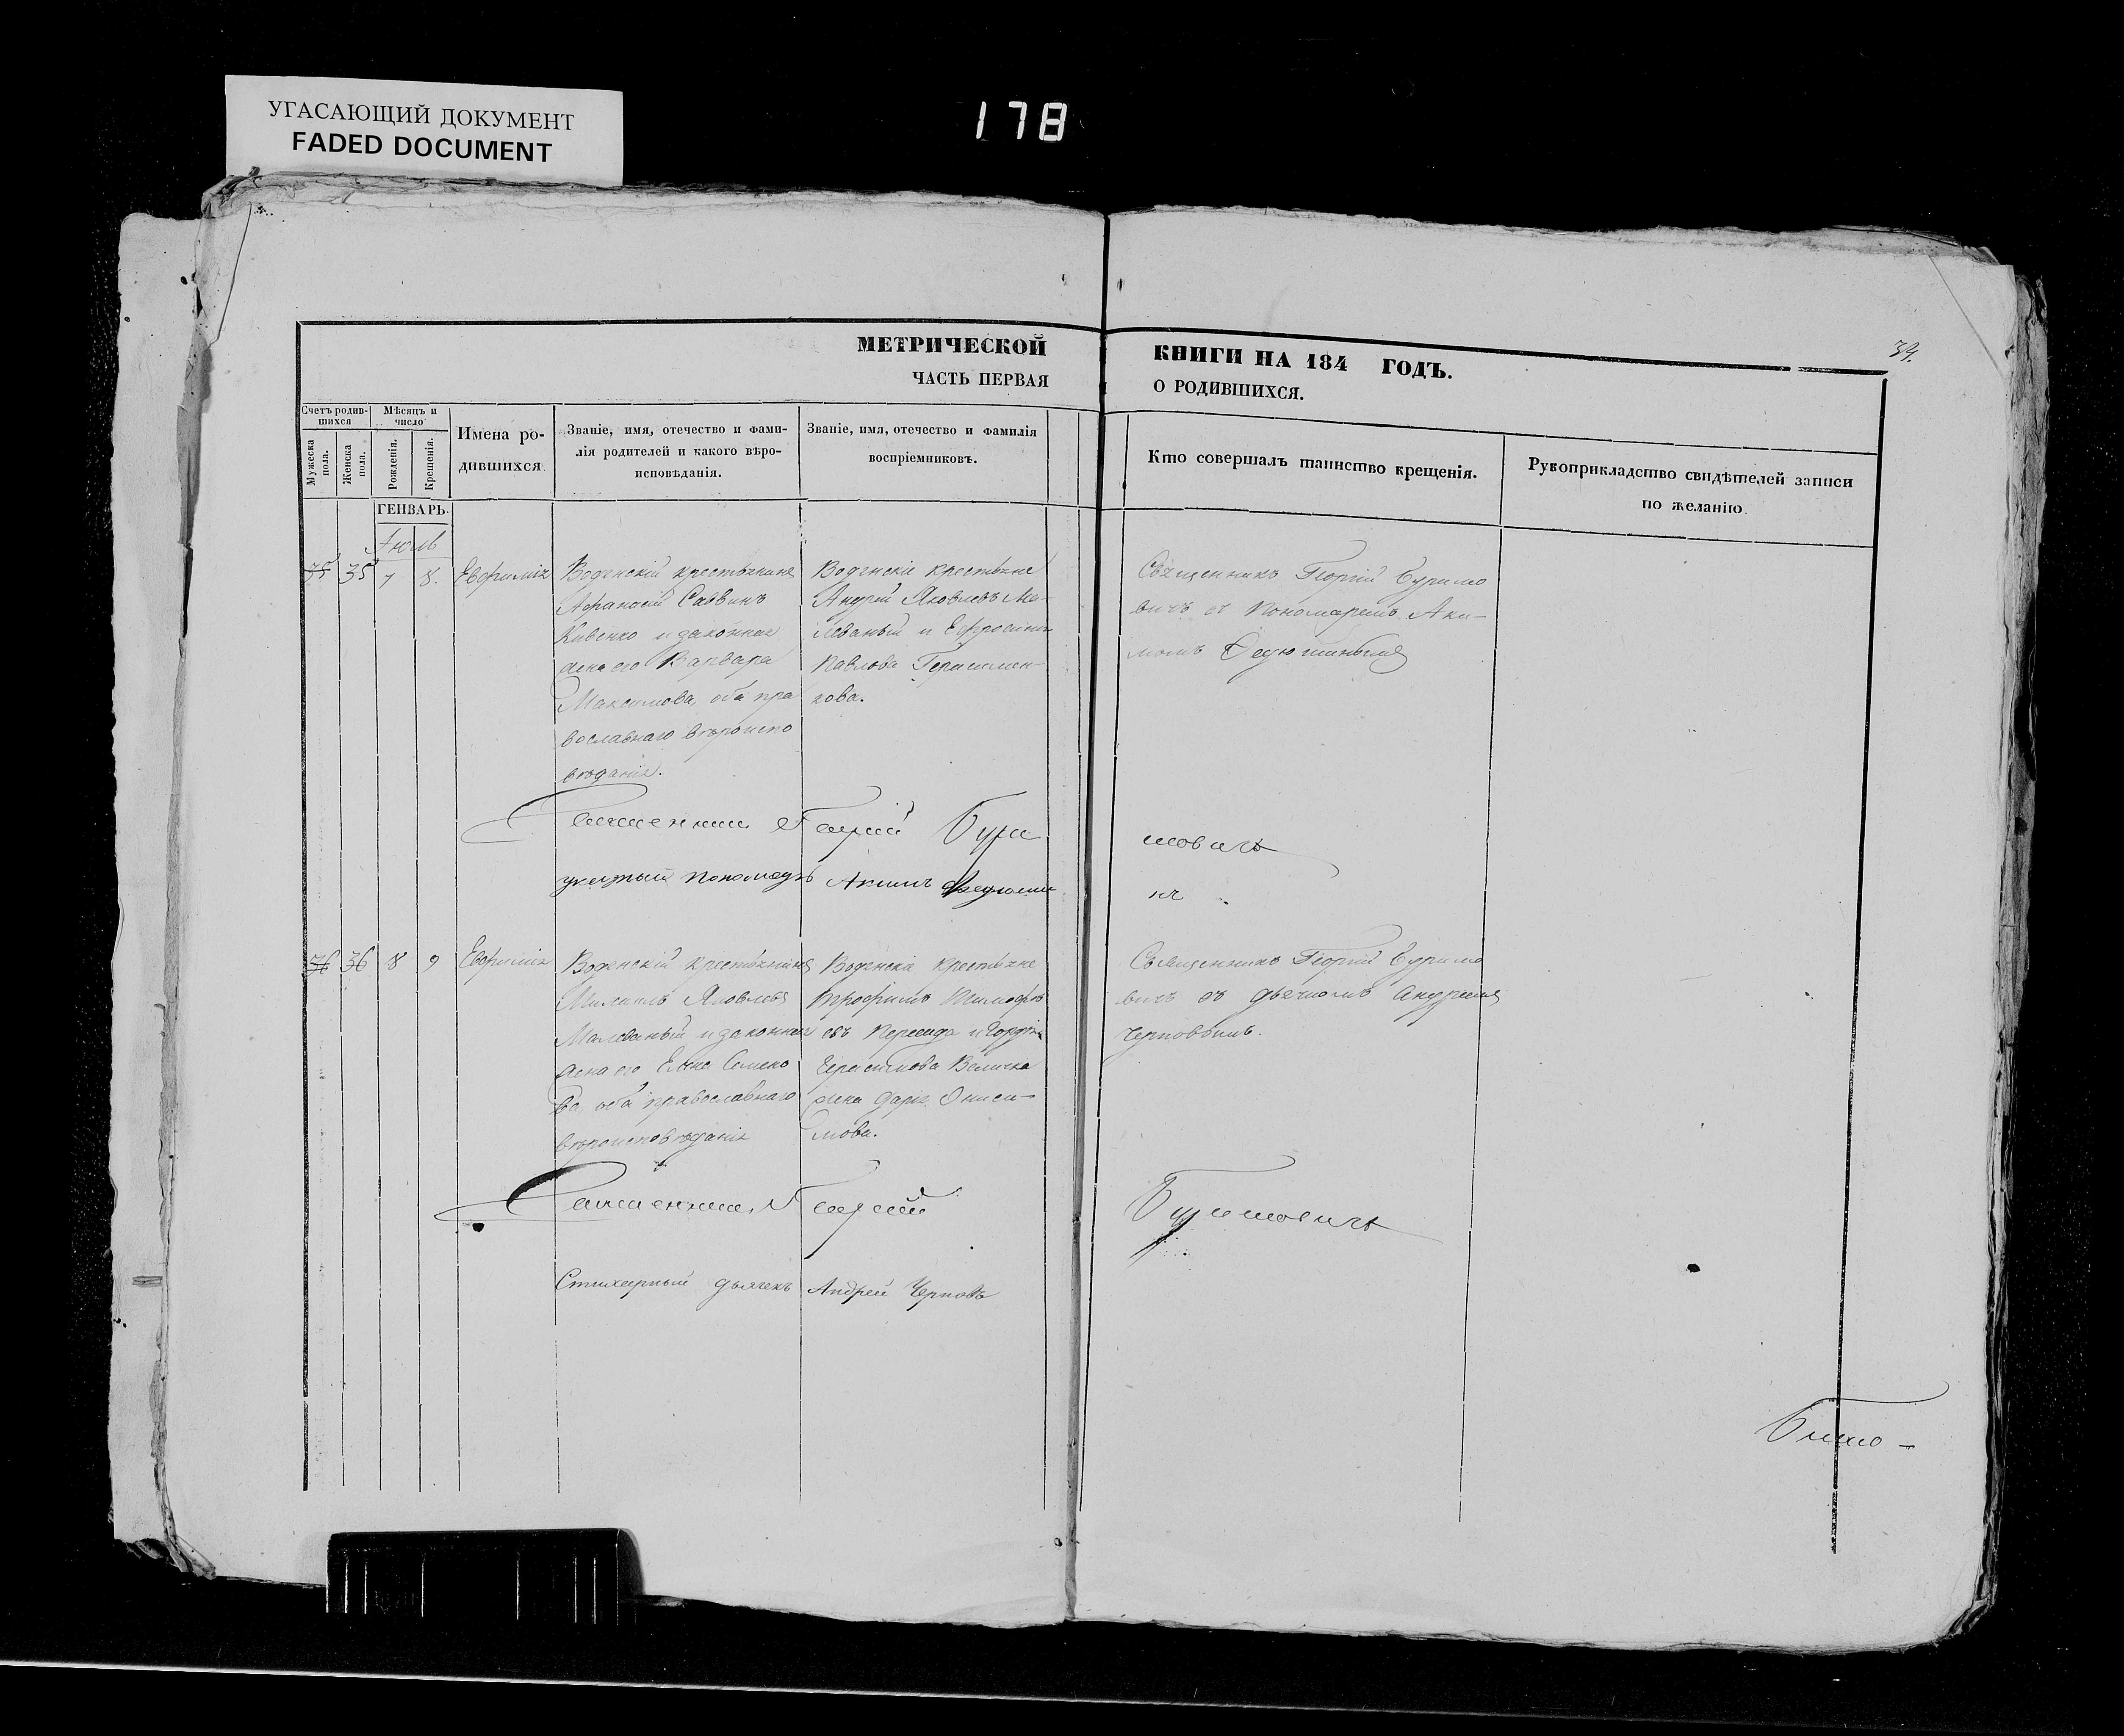 УГАСАЮЩИЙ ДОКУМЕНТ
FADED DOCUMENT
178
39.
МЕТРИЧЕСКОЙ КНИГИ НА 184 ГОДЪ.
ЧАСТЬ ПЕРВАЯ О РОДИВШИХСЯ.
Счетъ родив-
шихся
Мужеска
пола.
Женска
пола.
Мѣсяцъ и
число
Рожденія.
Крещенія.
Имена ро-
дившихся.
Званіе, имя, отечество и фами-
лія родителей и какого вѣро-
исповѣданія.
Званіе, имя, отечество и фамилія
воспріемниковъ.
Кто совершалъ таинство крещенія.
Рукоприкладство свидѣтелей записи
по желанію.
ГЕНВАРЬ.
Іюль
35 35 7 8. Евфимія
Воденскій крестьянинъ
Афанасій Саввинъ
Кивенко и законная
жена его Варвара
Максимова, оба пра
вославнаго вѣроиспо
вѣданія.
Воденскіе крестьяне
Андрей Яковлевъ Ма-
леваный и Ефросинія
Павлова Герасимен-
кова.
Священникъ Георгій Буримо
вичъ съ Пономаремъ Аки-
момъ Федюшинымъ
Священникъ Георгій Бури
мовичъ
указный пономарь Акимъ Федюши
нъ
36 36 8 9 Евфимія
Воденскій крестьянинъ
Михаилъ Яковлевъ
Малеваный и законная
жена его Елена Семено
ва оба православнаго
вѣроисповѣданія
Воденскіе крестьяне
Трофимъ Тимофѣ
евъ и Гордѣя
Герасимова Величка
жена ДаріяОниси-
мова.
Священникъ Георгій Буримо
вичъ съ дьячкомъ Андреемъ
Черновымъ.
Священникъ Георгій Буримовичъ
Стихарный дьячекъ Андрей Черновъ